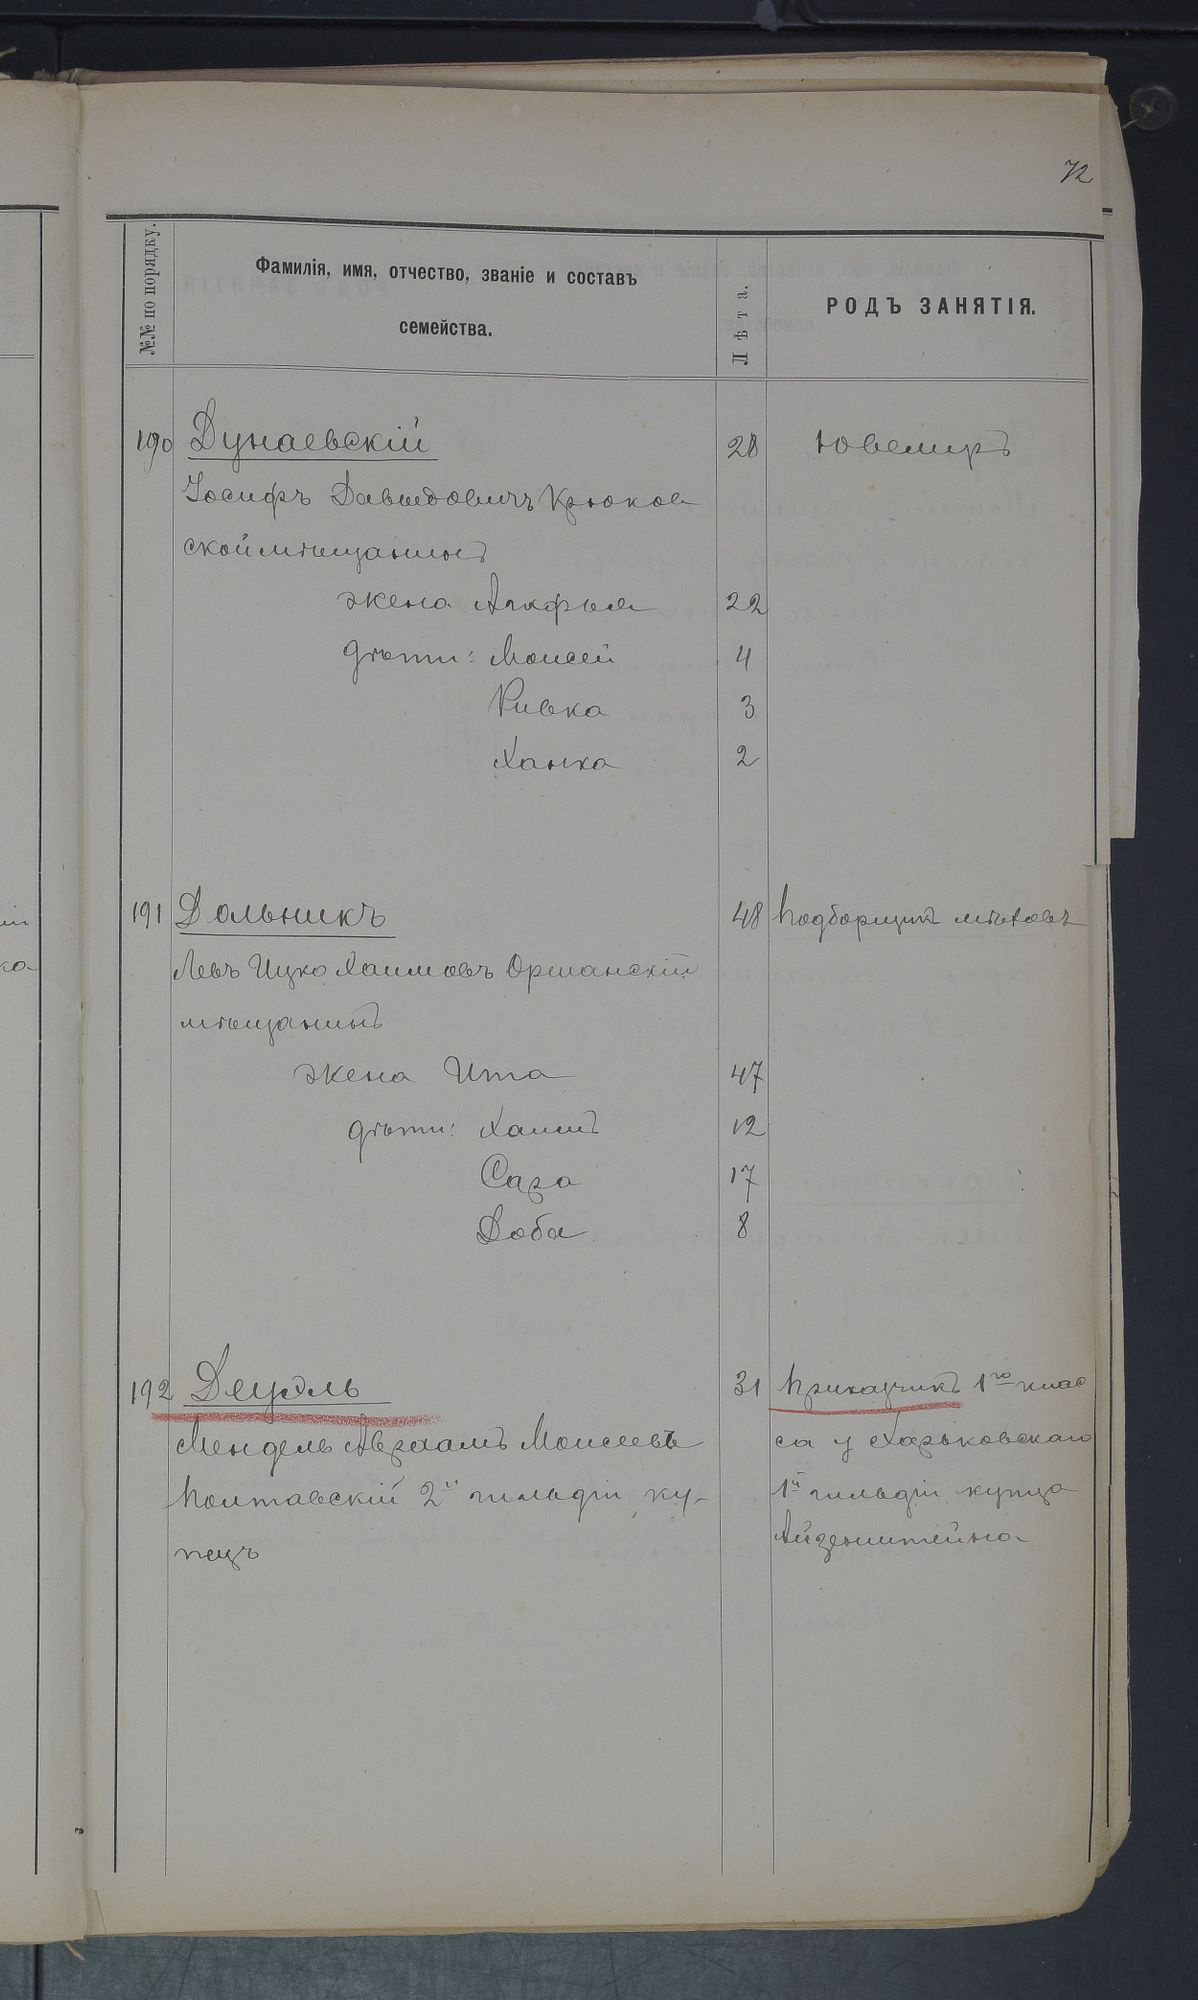 72
№№ по порядку.
Фамилія, имя, отчество, званіе и составъ
семейства.
Лѣта.
РОДЪ ЗАНЯТІЯ.
190 Дунаевскій 28 Ювелиръ
Іосифъ Давыдовичъ Крюков
ской мѣщанинъ
жена Агафья 22
дѣти: Моисей 4
Ривка 3
Ханка 2
191 Дольникъ 48 Подборщикъ мѣховъ
Левъ Ицко Хаимовъ Оршанскій
мѣщанинъ
жена Ита 47
дѣти: Хаимъ 12
Сара 17
Доба 8
192 Деуэль 31 Приказчикъ 1го клас
Мендель Авраамъ Моисеевъ са у Харьковскаго
Полтавскій 2й гильдіи ку- 1й гильдіи купца
пецъ Айзенштейна